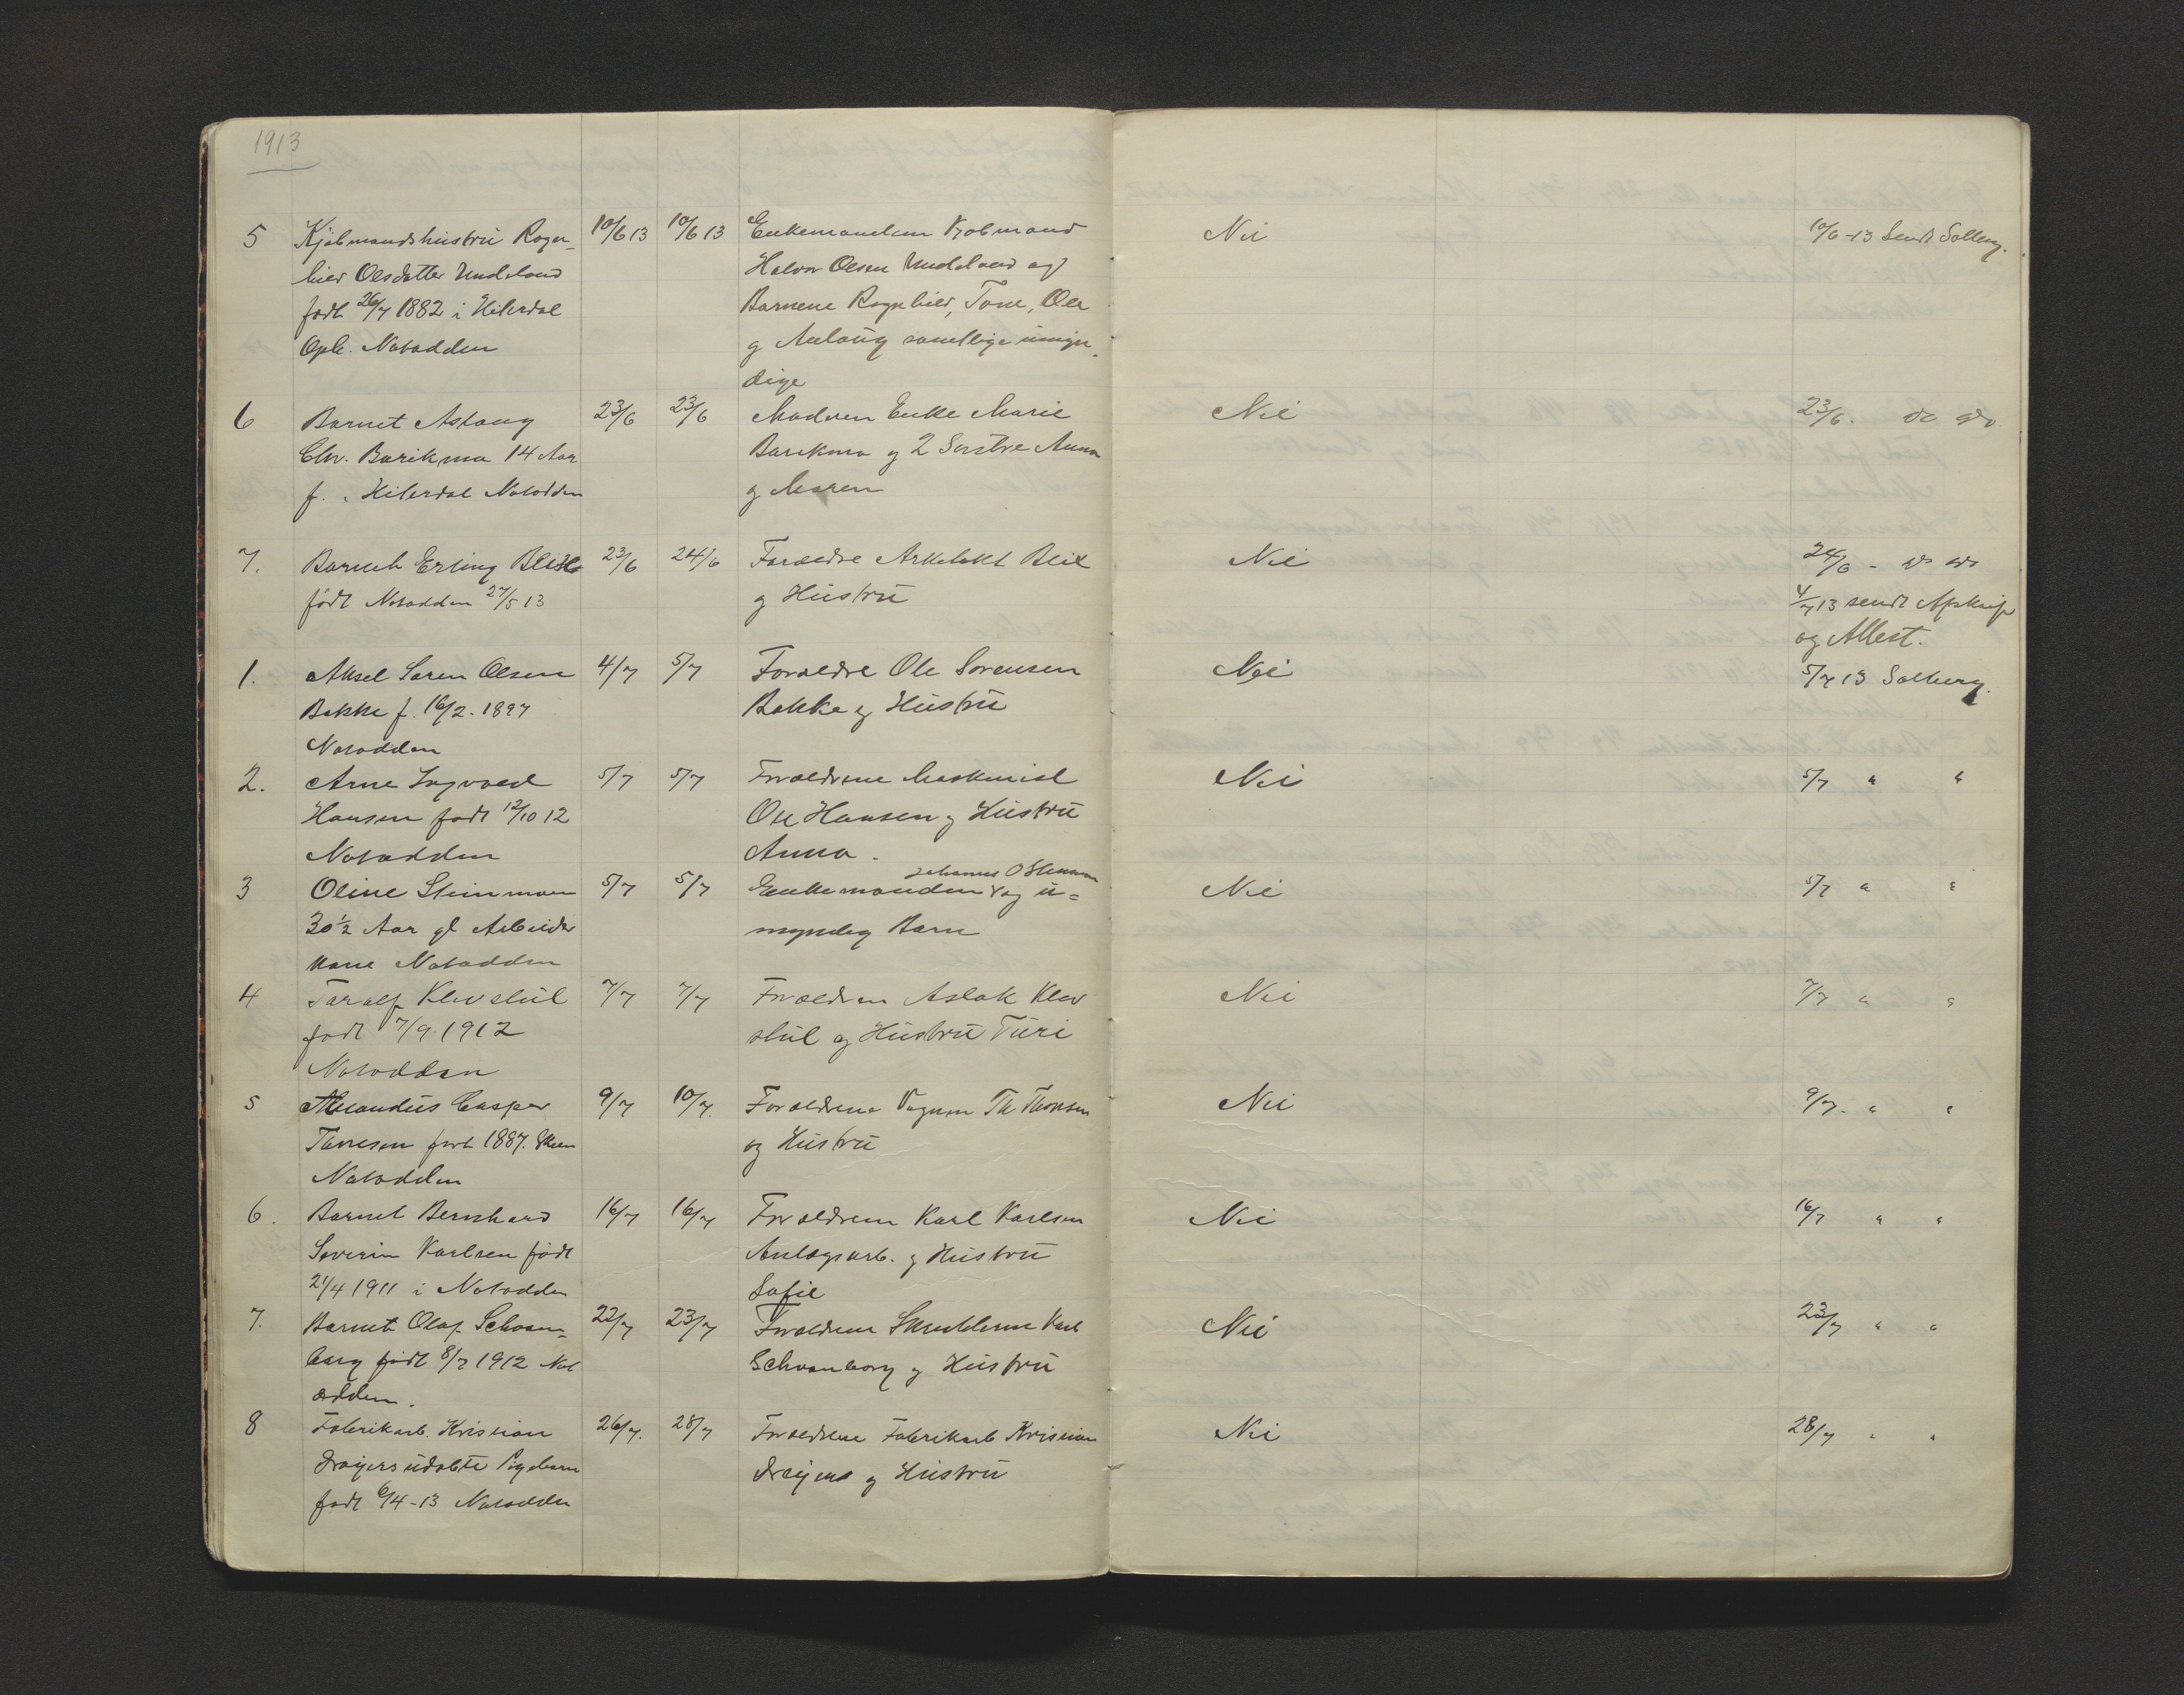 1913
5 Kjøbmandshustru Ragn- 10/6 13 10/6 13 Enkemanden Kjøbmand Nei 10/6-13 Sendt Solberg.
hild Olsdatter Undeland Halvor Olsen Undeland og
født 26/7 1882 i Hiterdal Barnene Ragnhild, Tone, Ole
Oph. Notodden og Aslaug samtlige umyn-
dige
6 Barnet Aslaug 23/6 23/6 Moderen Enke Marie Nei 23/6. do do
Chr. Barikmo 14 Aar Barikmo og 2 Søstre Anna
f. i Hiterdal Notodden og Maren
7. Barnet Erling Blix 23/6 24/6 Forældre Arkitekt Blix Nei 24/6 - do do
født Notodden 27/5 13 og Hustru 4/7 13 sendt Afskrift
og Attest.
1. Aksel Søren Olsen 4/7 5/7 Forældre Ole Sørensen Nei 5/7 13 Solberg.
Bakke f. 16/2-1897 Bakke og Hustru
Notodden
2. Arne Ingvald 5/7 5/7 Forældrene Maskinist Nei 5/7 " "
Hansen født 12/10 12 Ole Hansen og Hustru
Notodden Anna.
Johannes O Steinmoen
3 Oline Steinmoen 5/7 5/7 Enkemanden og u= Nei 5/7 " "
30½ Aar gl Arbeider myndig Barn
kone Notodden
4 Taralf Klevstul 7/7 7/7 Forældren Aslak Klev Nei 7/7 " "
født 7/9 1912 stul og Hustru Turi
Notodden
5 Casper 9/7 10/7. Forældrene og Nei 9/7. " "
født 1887. Skien og Hustru
Notodden
6. Barnet Bernhard 16/7 16/7 Forældrene Karl Karlsen Nei 16/7 " "
Severin Karlsen født Anlægsarb. og Hustru
21/4 1911 i Notodden Sofie
7. Barnet Olaf Schwan- 22/7 23/7 Forældrene Karl Nei 23/7 " "
borg født 8/7 1912 Not Schwanborg og Hustru
odden.
8 Fabrikarb. Kristian 26/7. 28/7 Forældrene Fabrikarb Kristian Nei 28/7 " "
Dreyers udøbte Pigebarn Dreyers og Hustru
født 6/4-13 Notodden